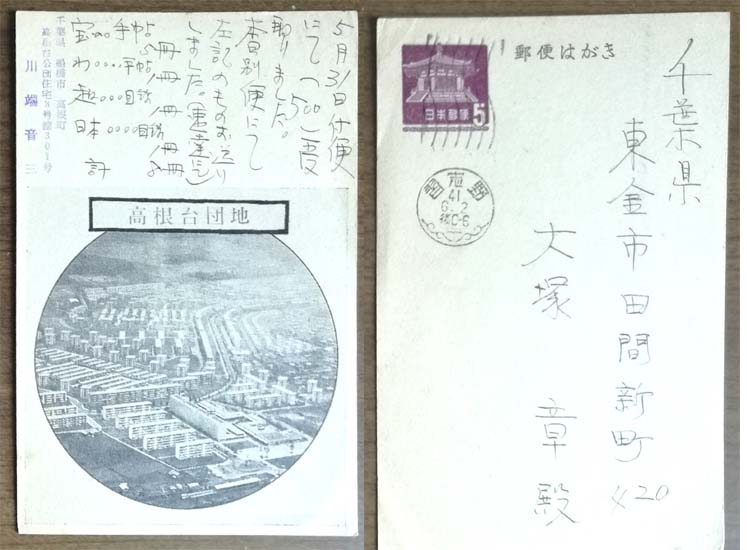 5月31日付便
にて(500)受
取りました。
本日別便にて
左記のものお送り
しました。
宝 手帖 一冊
わ 手帖 一冊
趣 目録 一冊
日本 目録 一冊
計
千葉県 船橋市 高根町
高根台公団住宅 号館301号
川端音三
高根台団地
郵便はがき
日本郵便 5
習志野
41
6.2
千葉県
東金市田間新町420
大塚 章殿